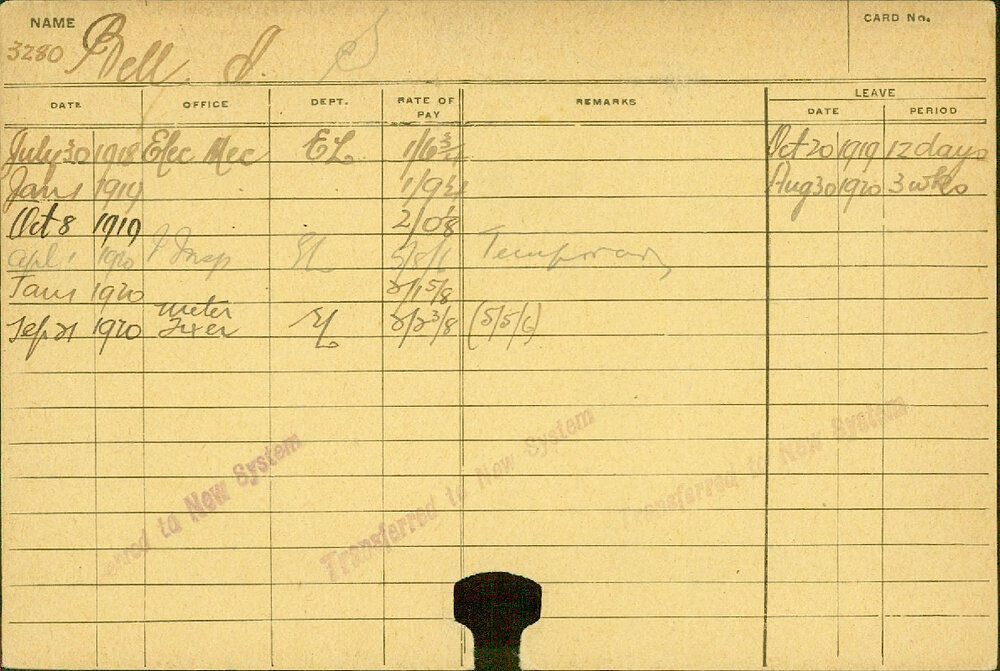 NAME
3280 Bell. J.
CARD No.
DATE OFFICE DEPT. RATE OF PAY REMARKS LEAVE
DATE PERIOD
July 30 1918 Elec Mec EL 1/6 3/4 Oct 20 1919 12 days
Jan 1 1919 1/9 Aug 30 1920 3 wks
Oct 8 1919 2/0
Apl. 1 1920 Insp EL Temporary
Jan 1 1920 2/1 5/8
Sep 21 1920 meter Fixer EL 2/2 3/8 (5/5/6)
Transferred to New System
Transferred to New System
Transferred to New System